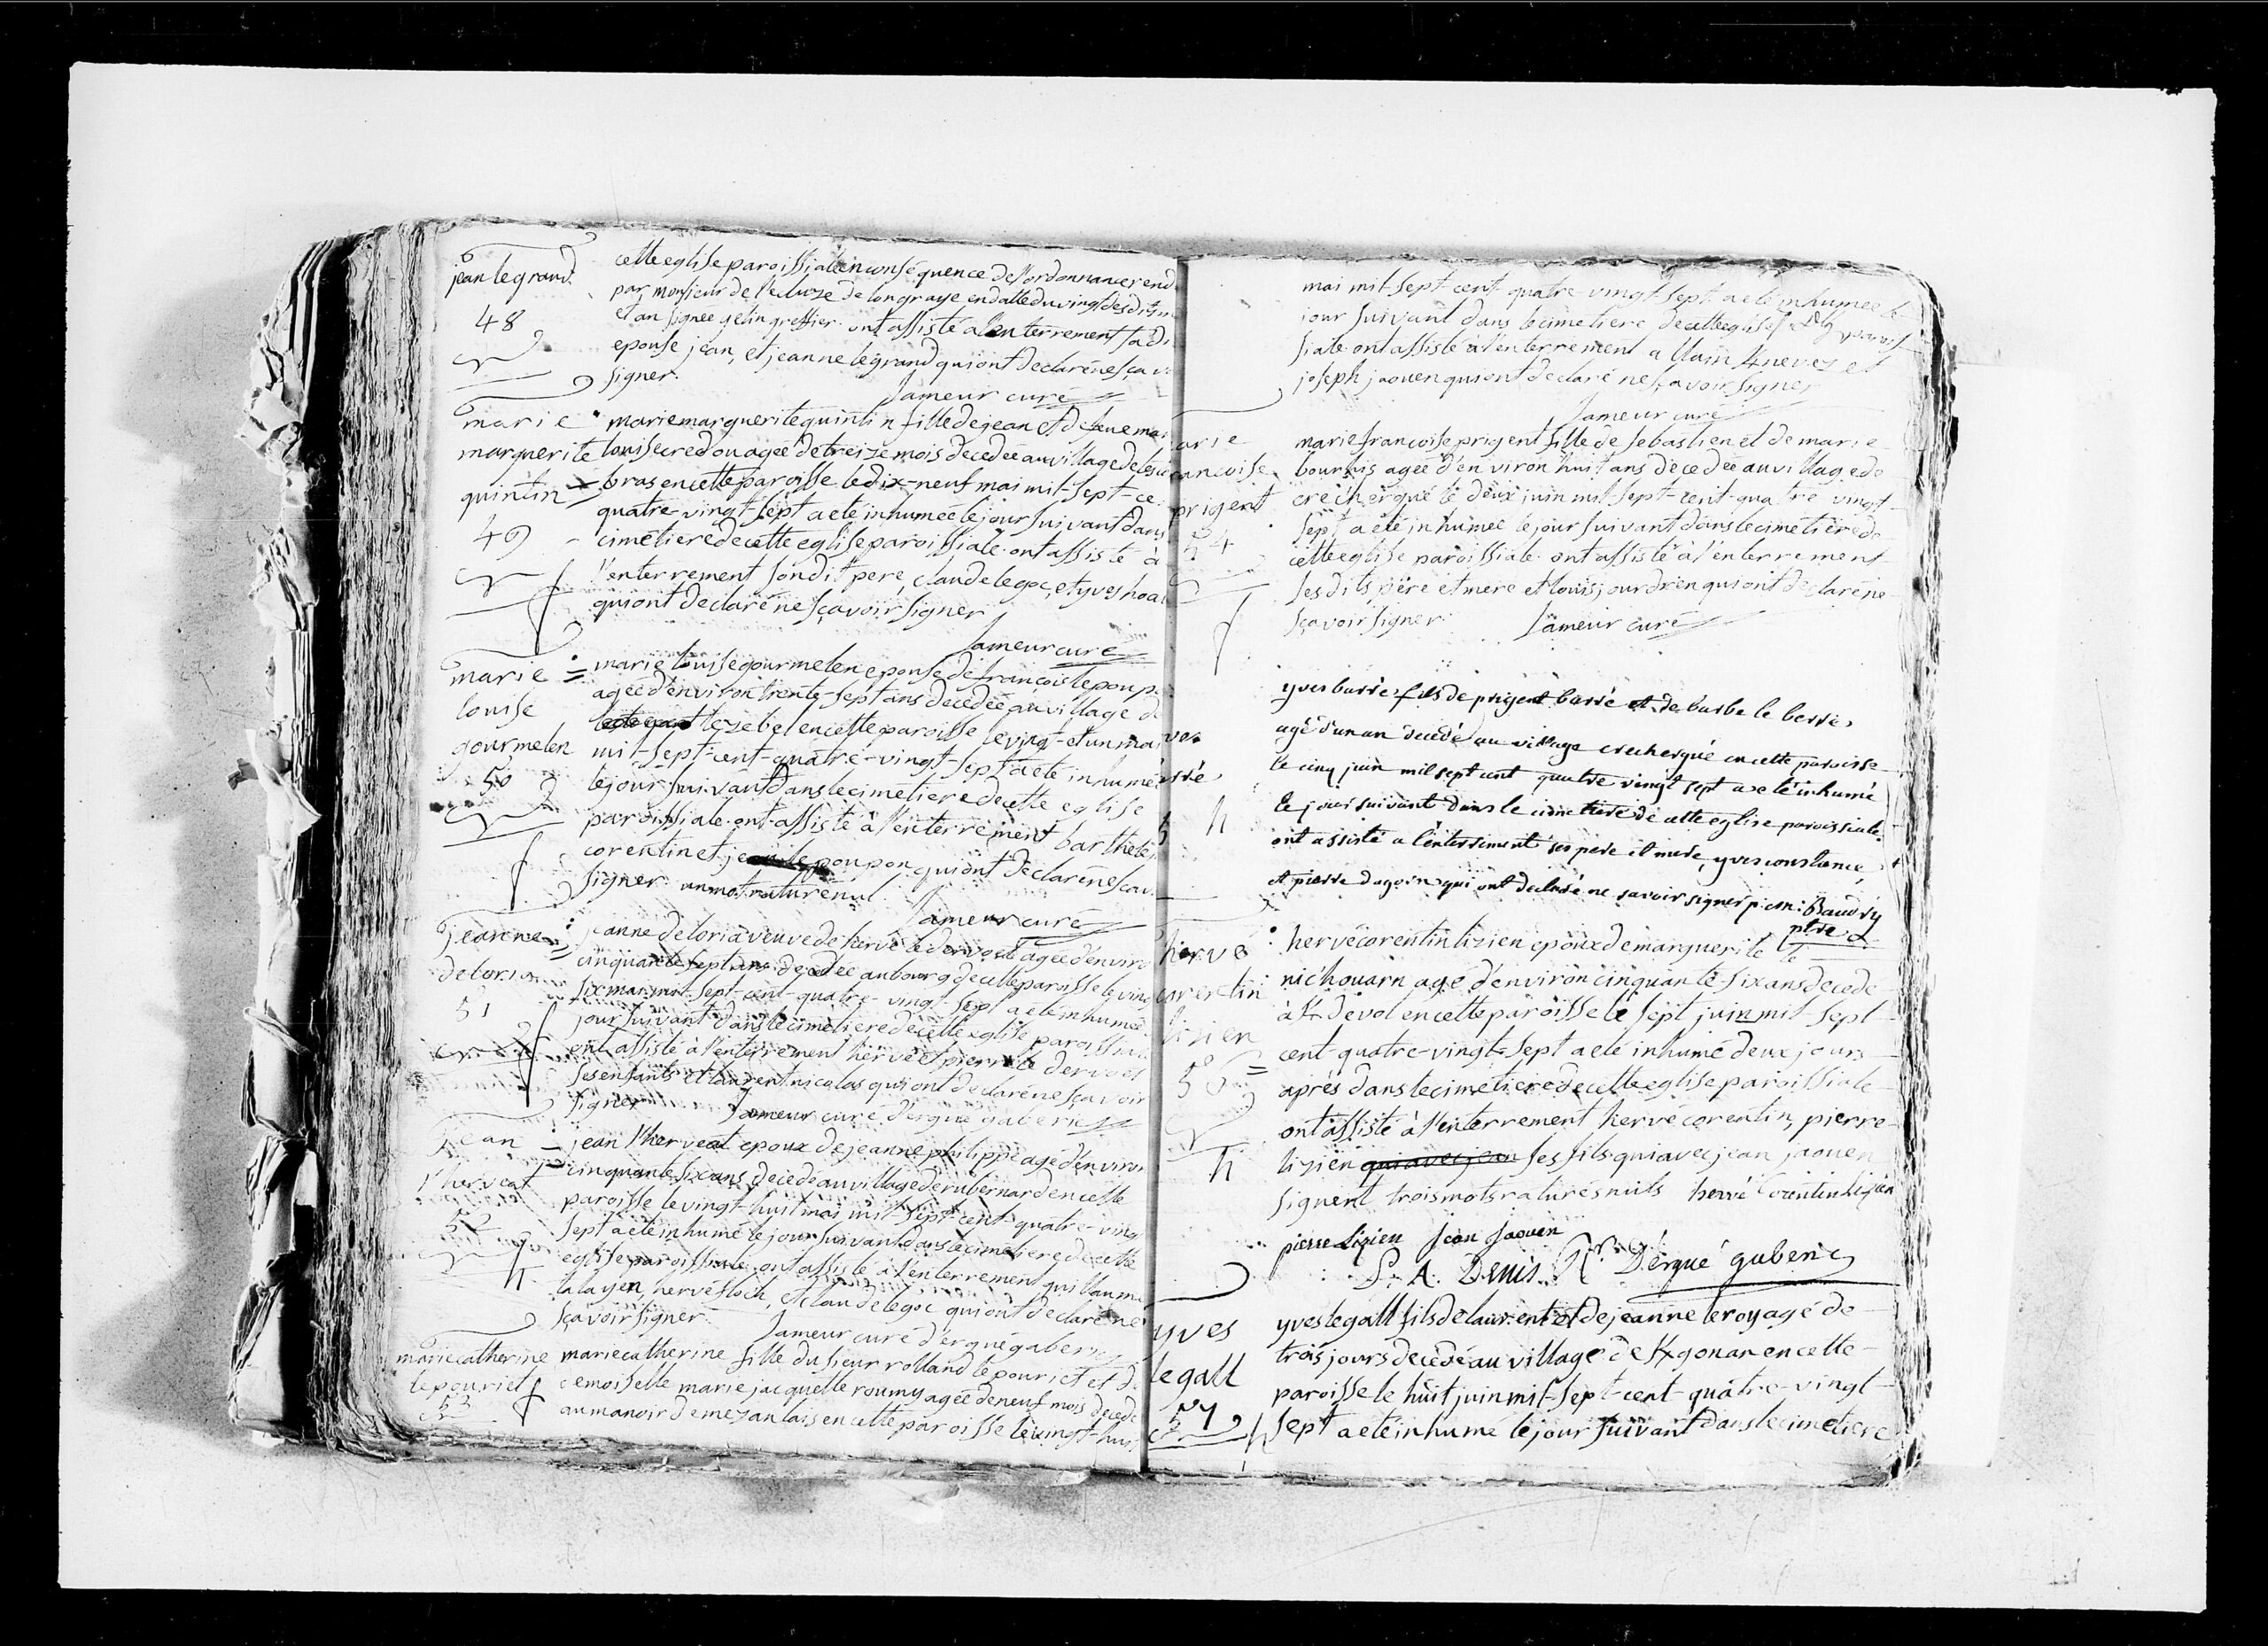 jean le grand
48
cette eglise paroissiale en conséquence de l'ordonnance rend
par monsieur de l'ecluze de longraye en datte du vingt desdits m
et an signée gelin greffier. ont assisté a l'enterrement sa di
epouse jean, et jeanne le grand qui ont declaré ne sçav
signer.
Lameur curé
marie
marguerite
quintin
49
marie marguerite quintin fille de jean et de feue mar
louise credou agée de treize mois decedée au village de
bras en cette paroisse le dix-neuf mai mil-sept-ce
quatre-vingt-sept a eté inhumée le jour suivant dans
cimetiere de cette eglise paroissiale. ont assisté à
l'enterrement son dit pere, claude le goc, et yves hoa
qui ont declaré ne sçavoir signer
Lameur curé
marie
louise
gourmelen
50
marie louise gourmelen epouse de françois le poup
agée d'environ trente-sept ans decedée au village d
lezebel en cette paroisse le vingt-et un mai
mil-sept-cent-quatre-vingt-sept a eté inhumé
le jour suivant dans le cimetiere de cette eglise
paroissiale. ont assisté à l'enterrement barthele
corentin et jean le poupon qui ont declaré ne sçav
signer. un mot raturé nul.
Lameur curé
jeanne
deloria
51
jeanne deloria veuve de hervé le dervoet agée d'enviro
cinquante sept ans decedée au bourg de cette paroisse le ving
six mai mil-sept-cent-quatre-vingt-sept a eté inhumée
jour suivant dans le cimetiere de cette eglise paroissiale
ont assisté à l'enterrement hervé et pierre le dervoet
ses enfants et laurent nicolas qui ont declaré ne sçavoir
signer Lameur curé d'ergué gaberic
jean
l'herveat
52
jean l'herveat epoux de jeanne philippe agé d'environ
cinquante six ans decedé au village de rubernard en cette
paroisse le vingt-huit mai mil-sept-cent-quatre-ving
sept a eté inhumé le jour suivant dans le cimetiere de cette
eglise paroissiale. ont assisté à l'enterrement guillaume
talayen, hervé floch, et claude le goc qui ont declaré ne
sçavoir signer. Lameur curé d'ergué gaberic
marie catherine
le pouriet
53
marie catherine fille du sieur rolland le pouriet et d
emoiselle marie jacquette roumy agée de neuf mois decedé
au manoir de mezanlais en cette paroisse le vingt-hui
mai mil-sept-cent-quatre-vingt-sept a eté inhumée le
jour suivant dans le cimetiere de cette eglise parois
siale. ont assisté à l'enterrement allain et
joseph jaouen qui ont declaré ne sçavoir signer
Lameur curé
arie
ancoise
prigent
54
marie francoise prigent fille de sebastien et de marie
bourhis agée d'environ huit ans decedée au village de
crecherqué le deux juin mil-sept-cent-quatre-vingt
sept a eté inhumée le jour suivant dans le cimetiere de
cette eglise paroissiale. ont assisté à l'enterrement
ses dits père et mere et louis jourdren qui ont declaré ne
sçavoir signer. Lameur curé
yves barré fils de prigent barré et de barbe le berre
agé d'un an decedé au village crecherqué en cette paroisse
le cinq juin mil sept cent quatre vingt sept a eté inhumé
le jour suivant dans le cimetiere de cette eglise paroissiale.
ont assisté a l'enterrement ses pere et mere, yves constance,
et pierre dagorn qui ont declaré ne savoir signer Baudry
ptre
hervé
corentin
lizien
56
hervé corentin lizien epoux de marguerite le
nichouarn agé d'environ cinquante-six ans decedé
à St devol en cette paroisse le sept juin mil-sept
cent-quatre-vingt-sept a eté inhumé deux jours
après dans le cimetiere de cette eglise paroissiale
ont assisté à l'enterrement hervé corentin, pierre
lizien qui avec jean ses fils qui avec jean jaouen
signent trois mots raturés nuls hervé Corentin Lizien
pierre Lizien Jean Jaouen
A. Denis Dergué gaberic
yves
le gall
57
yves le gall fils de laurent et de jeanne le roy agé de
trois jours decedé au village de Kgonan en cette
paroisse le huit juin mil-sept-cent-quatre-vingt
sept a eté inhumé le jour suivant dans le cimetiere